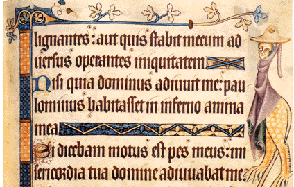 lignantes: aut quis stabit mecum ad
uersus operantes iniquitatem
Nisi quia dominus adiuuit me: pau
lominus habitasset in inferno anima
mea
Si dicebam motus est pes meus: mi
sericordia tua domine adiuuabat me